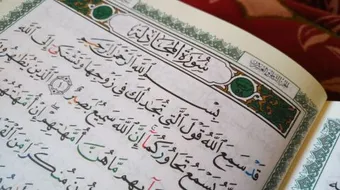 سُورَةُ المُجَادلة
بِسْمِ اللَّهِ الرَّحْمَٰنِ الرَّحِيمِ
قَدْ سَمِعَ اللَّهُ قَوْلَ الَّتِي تُجَٰدِلُكَ فِي زَوْجِهَا وَتَشْتَكِي إِلَى اللَّهِ
يَسْمَعُ تَحَاوُرَكُمَا إِنَّ اللَّهَ سَمِيعٌ بَصِيرٌ ١ الَّذِينَ يُظَٰهِرُونَ
مَّا هُنَّ أُمَّهَٰتِهِمْ إِنْ أُمَّهَٰتُهُمْ
مُنكَرًا مِّنَ